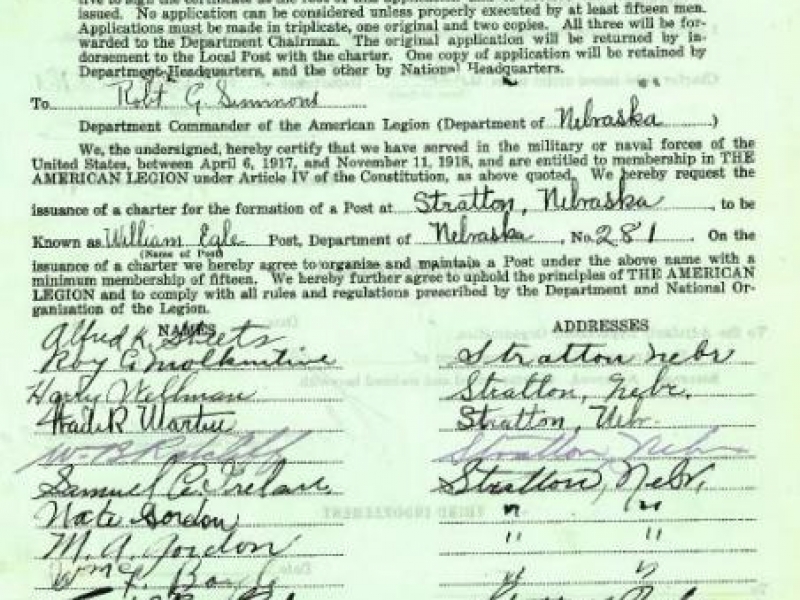 issued. No application can be considered unless properly executed by at least fifteen men.
Applications must be made in triplicate, one original and two copies. All three will be for-
warded to the Department Chairman. The original application will be returned by in-
dorsement to the Local Post with the charter. One copy of application will be retained by
Department Headquarters, and the other by National Headquarters.
To Robt G. Simmons
Department Commander of the American Legion (Department of Nebraska )
We, the undersigned, hereby certify that we have served in the military or naval forces of the
United States, between April 6, 1917, and November 11, 1918, and are entitled to membership in THE
AMERICAN LEGION under Article IV of the Constitution, as above quoted. We hereby request the
issuance of a charter for the formation of a Post at Stratton, Nebraska , to be
Known as William Egle Post, Department of Nebraska , No. 281 . On the
(Name of Post)
issuance of a charter we hereby agree to organize and maintain a Post under the above name with a
minimum membership of fifteen. We hereby further agree to uphold the principles of THE AMERICAN
LEGION and to comply with all rules and regulations prescribed by the Department and National Or-
ganisation of the Legion.
NAMES ADDRESSES
Alfred K. Sheets
Roy G. Stratton Nebr
Harry Wellman Stratton, Nebr.
R Stratton, Nebr.
W. B. Ratcliff Stratton, Nebr
Samuel C. Stratton, Nebr,
Nate Gordon " "
M. A. Gordon " "
Wm " "